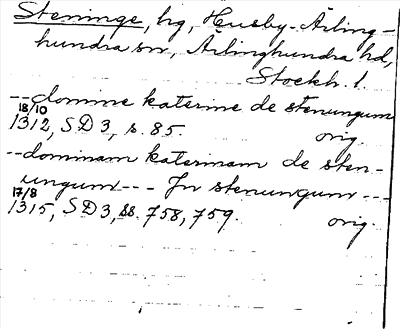 Steninge, hg, Husby-Ärling-
hundra sn, Ärlinghundra hd,
Stockh. l.
--domine katerine de stenungum
18/10
1312, SD3, s. 85. orig.
--dominam katerinam de sten-
ungum--- In stenungum---
17/8
1315, SD3, ss. 758, 759. orig.